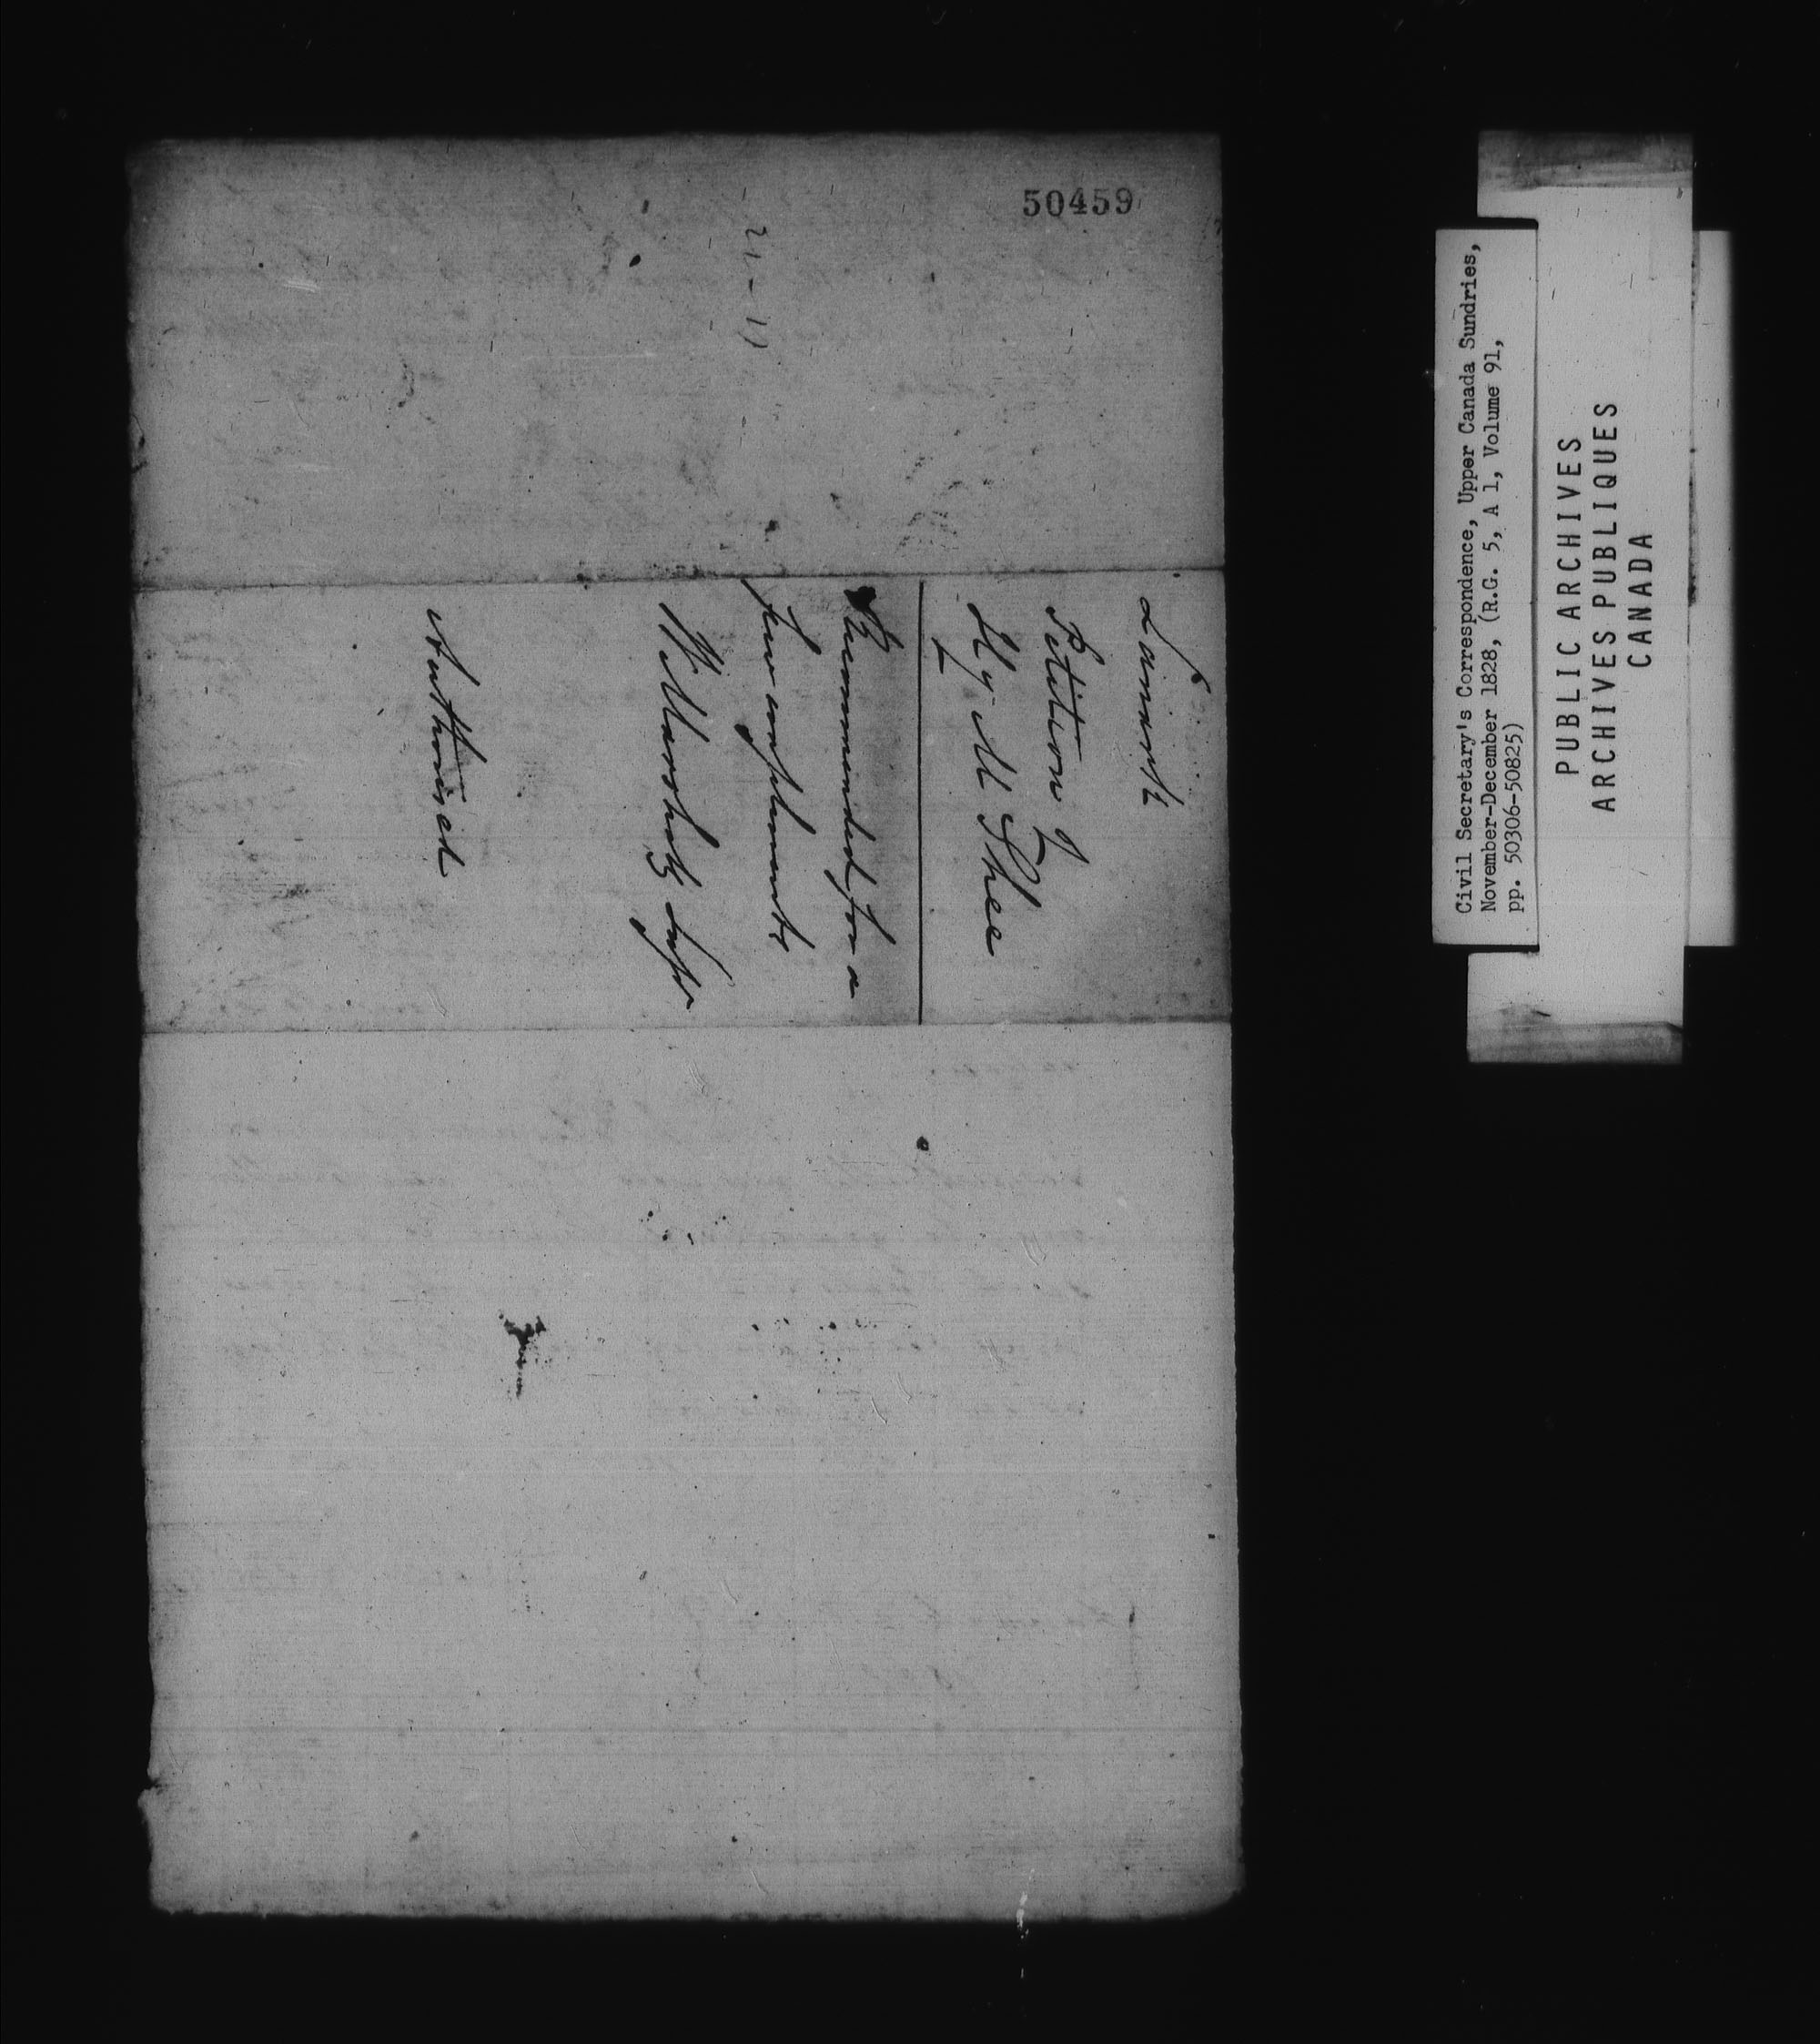 50459
21-11
Lanark
Petition of
Hy M Shea
Recommended for a
few implements
W Marshall Supr
Authorised
Civil Secretary's Correspondence, Upper Canada Sundries,
November-December 1828, (R.G. 5, A 1, Volume 91,
pp. 50306-50825)
PUBLIC ARCHIVES
ARCHIVES PUBLIQUES
CANADA